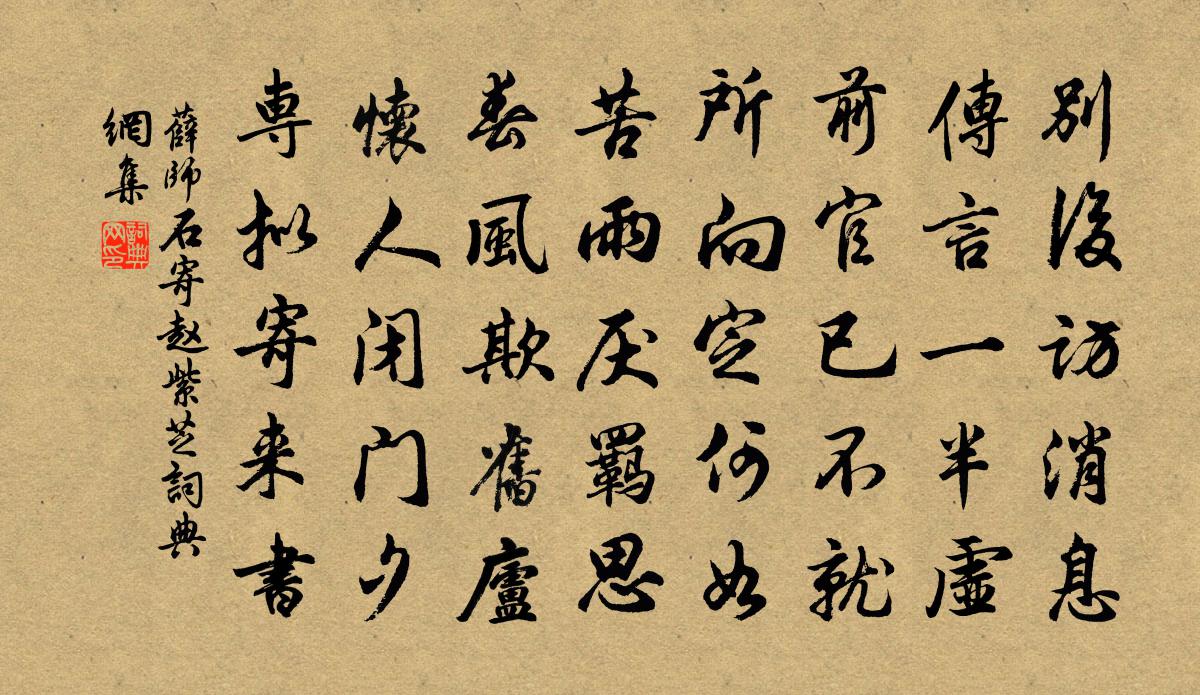 別後訪消息
傳言一半虛
前官已不就
所向定何如
苦雨厌羈思
春風欺舊廬
懷人闭门夕
専拟寄来書
薛師石寄赵紫芝詞典
網集
詞典
网印